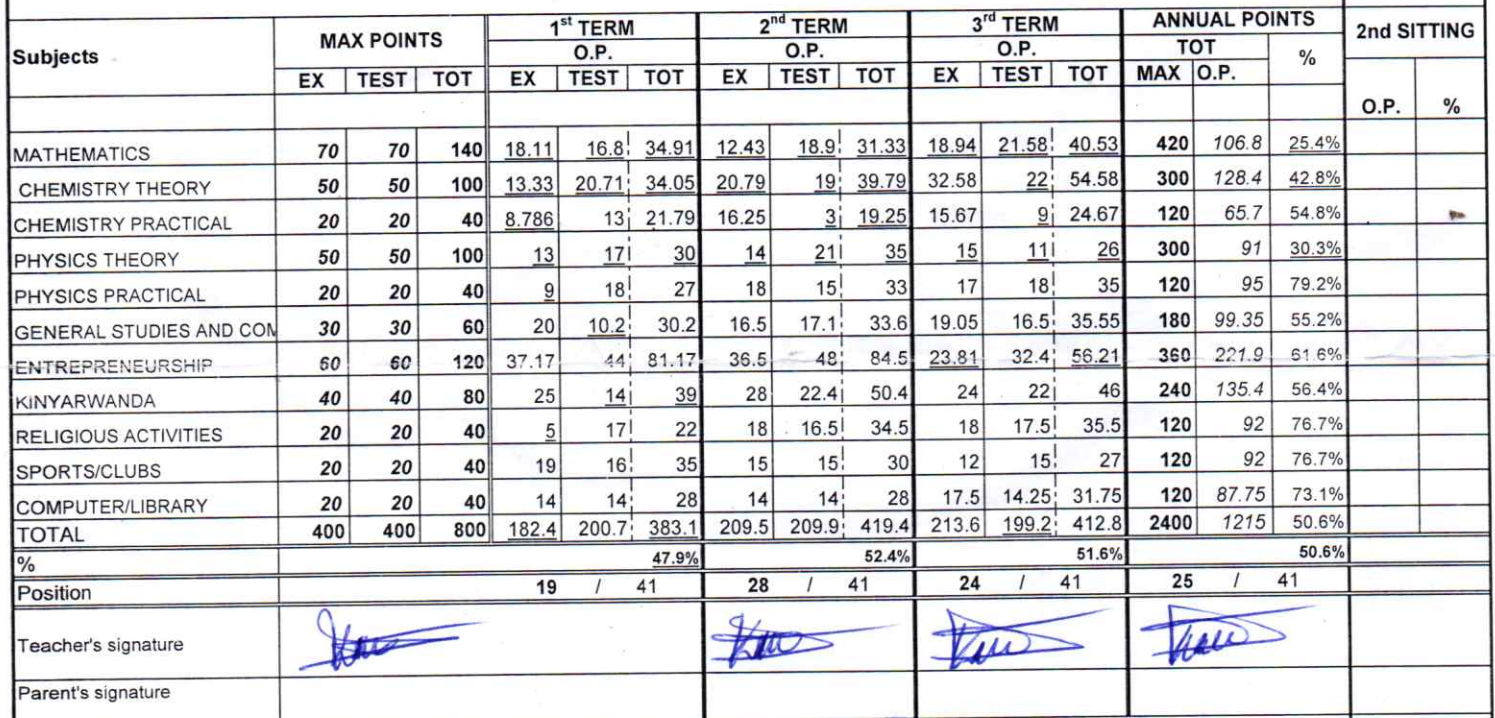 Subjects MAX POINTS 1st TERM 2nd TERM 3rd TERM ANNUAL POINTS 2nd SITTING
O.P. O.P. O.P. TOT %
EX TEST TOT EX TEST TOT EX TEST TOT EX TEST TOT MAX O.P.
O.P. %
MATHEMATICS 70 70 140 18.11 16.8 34.91 12.43 18.9 31.33 18.94 21.58 40.53 420 106.8 25.4%
CHEMISTRY THEORY 50 50 100 13.33 20.71 34.05 20.79 19 39.79 32.58 22 54.58 300 128.4 42.8%
CHEMISTRY PRACTICAL 20 20 40 8.786 13 21.79 16.25 3 19.25 15.67 9 24.67 120 65.7 54.8%
PHYSICS THEORY 50 50 100 13 17 30 14 21 35 15 11 26 300 91 30.3%
PHYSICS PRACTICAL 20 20 40 9 18 27 18 15 33 17 18 35 120 95 79.2%
GENERAL STUDIES AND COM 30 30 60 20 10.2 30.2 16.5 17.1 33.6 19.05 16.5 35.55 180 99.35 55.2%
ENTREPRENEURSHIP 60 60 120 37.17 44 81.17 36.5 48 84.5 23.81 32.4 56.21 360 221.9 61.6%
KINYARWANDA 40 40 80 25 14 39 28 22.4 50.4 24 22 46 240 135.4 56.4%
RELIGIOUS ACTIVITIES 20 20 40 5 17 22 18 16.5 34.5 18 17.5 35.5 120 92 76.7%
SPORTS/CLUBS 20 20 40 19 16 35 15 15 30 12 15 27 120 92 76.7%
COMPUTER/LIBRARY 20 20 40 14 14 28 14 14 28 17.5 14.25 31.75 120 87.75 73.1%
TOTAL 400 400 800 182.4 200.7 383.1 209.5 209.9 419.4 213.6 199.2 412.8 2400 1215 50.6%
% 47.9% 52.4% 51.6% 50.6%
Position 19 / 41 28 / 41 24 / 41 25 / 41
Teacher's signature
Parent's signature